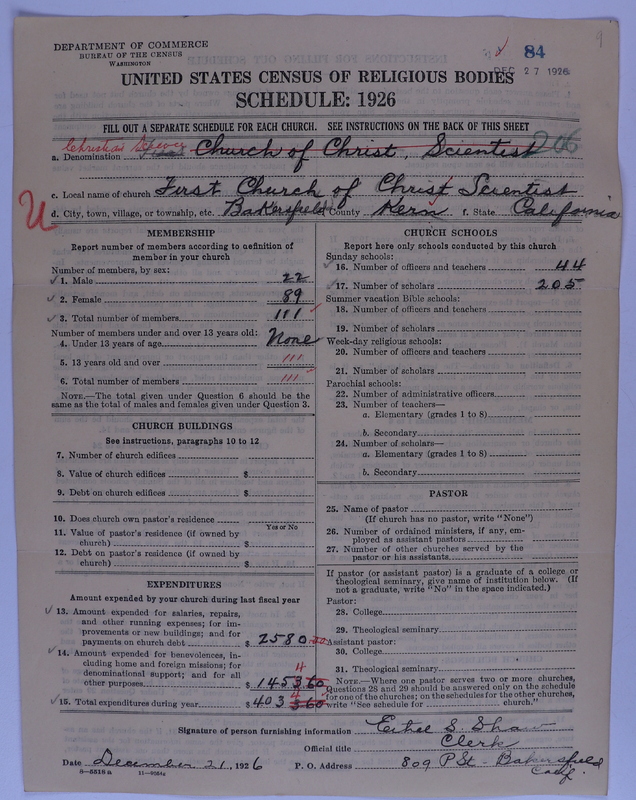 DEPARTMENT OF COMMERCE
BUREAU OF THE CENSUS
WASHINGTON
84
DEC 27 1926
9
UNITED STATES CENSUS OF RELIGIOUS BODIES
SCHEDULE: 1926
FILL OUT A SEPARATE SCHEDULE FOR EACH CHURCH. SEE INSTRUCTIONS ON THE BACK OF THIS SHEET
Christian Science 206
a. Denomination First Church of Christ, Scientist
c. Local name of church First Church of Christ Scientist
U
d. City, town, village, or township, etc. Bakersfield County Kern f. State California
MEMBERSHIP
Report number of members according to definition of
member in your church
Number of members, by sex:
1. Male 22
2. Female 89
3. Total number of members 111
Number of members under and over 13 years old:
4. Under 13 years of age None
5. 13 years old and over 111
6. Total number of members 111
NOTE.—The total given under Question 6 should be the
same as the total of males and females given under Question 3.
CHURCH BUILDINGS
See instructions, paragraphs 10 to 12
7. Number of church edifices
8. Value of church edifices $
9. Debt on church edifices $
10. Does church own pastor's residence
Yes or No
11. Value of pastor's residence (if owned by
church) $
12. Debt on pastor's residence (if owned by
church) $
EXPENDITURES
Amount expended by your church during last fiscal year
13. Amount expended for salaries, repairs,
and other running expenses; for im-
provements or new buildings; and for
payments on church debt $ 2580
14. Amount expended for benevolences, in-
cluding home and foreign missions; for
denominational support; and for all
other purposes $ 1453 60
4
15. Total expenditures during year $ 403 3 60
4
CHURCH SCHOOLS
Report here only schools conducted by this church
Sunday schools:
16. Number of officers and teachers 44
17. Number of scholars 205
Summer vacation Bible schools:
18. Number of officers and teachers
19. Number of scholars
Week-day religious schools:
20. Number of officers and teachers
21. Number of scholars
Parochial schools:
22. Number of administrative officers
23. Number of teachers—
a. Elementary (grades 1 to 8)
b. Secondary
24. Number of scholars—
a. Elementary (grades 1 to 8)
b. Secondary
PASTOR
25. Name of pastor
(If church has no pastor, write "None")
26. Number of ordained ministers, if any, em-
ployed as assistant pastors
27. Number of other churches served by the
pastor or his assistants
If pastor (or assistant pastor) is a graduate of a college or
theological seminary, give name of institution below. (If
not a graduate, write "No" in the space indicated.)
Pastor:
28. College
29. Theological seminary
Assistant pastor:
30. College
31. Theological seminary
NOTE.—Where one pastor serves two or more churches,
Questions 28 and 29 should be answered only on the schedule
for one of the churches; on the schedules for the other churches,
write "See schedule for church."
Signature of person furnishing information Ethel S. Shaw
Official title Clerk
Date December 21, 1926 P. O. Address 809 P St. Bakersfield
Calif.
8—5518 a 11—9554c